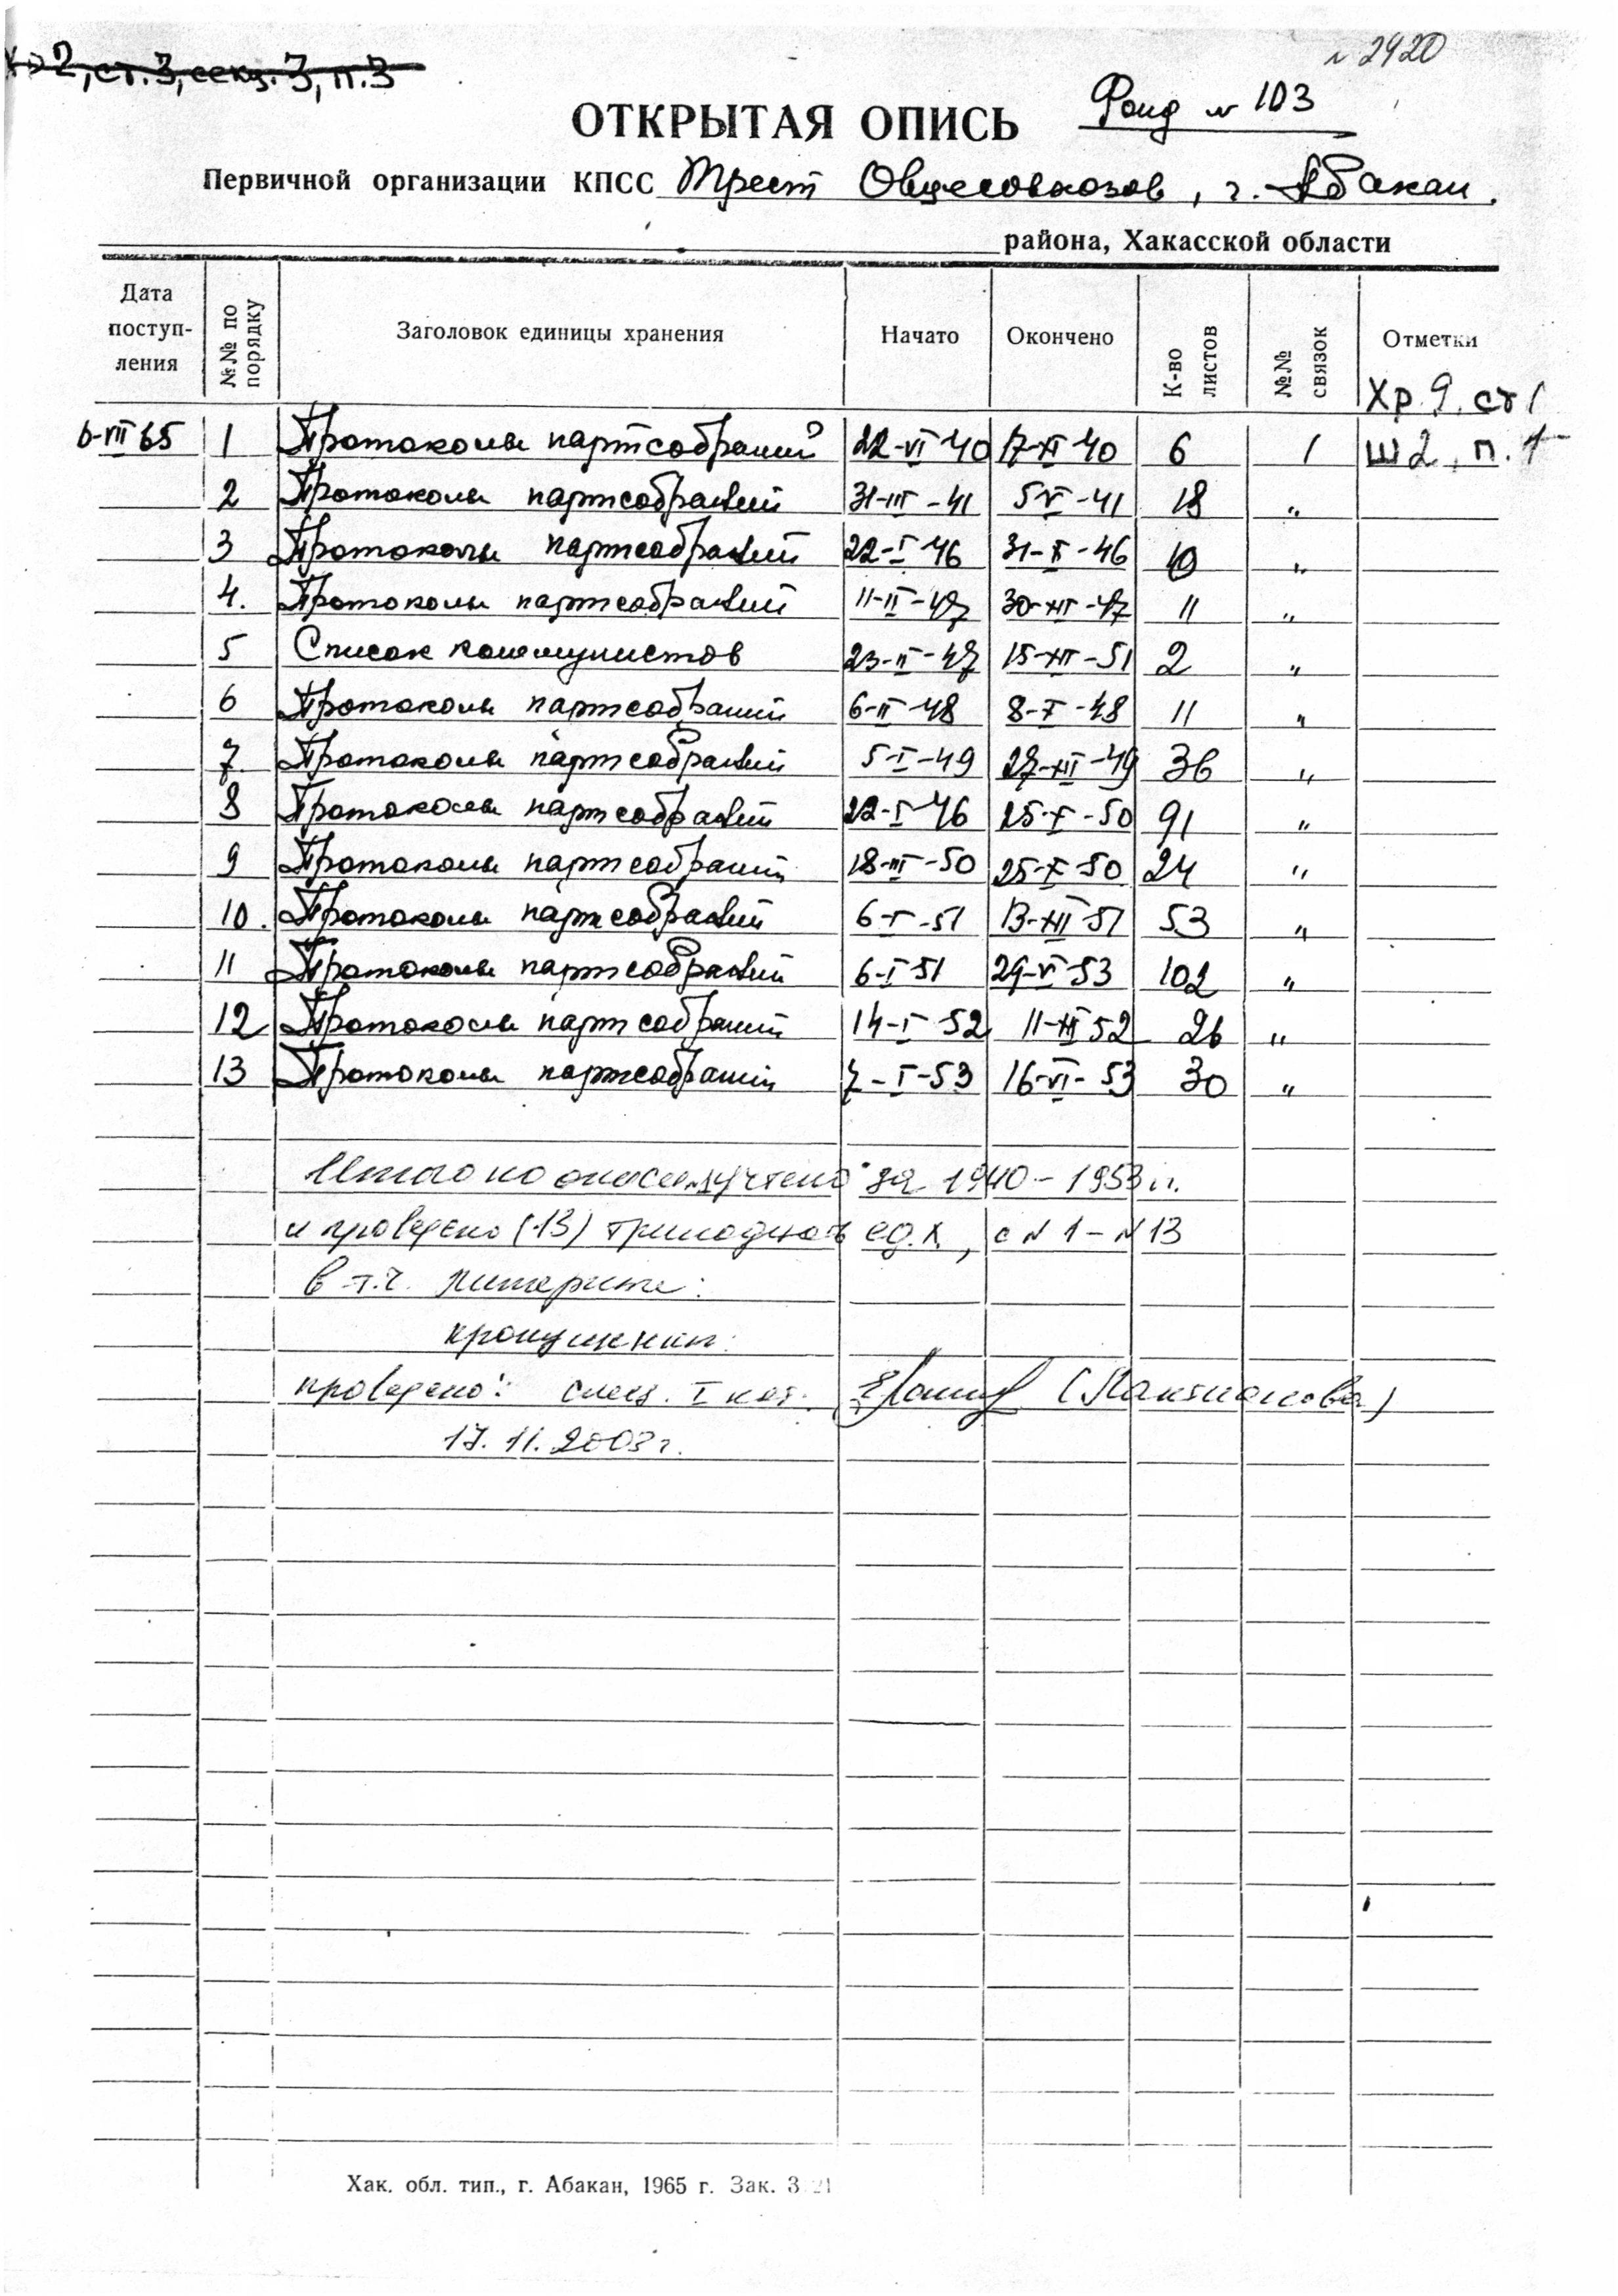 № 2420
хр 2, ст. 3, секц. 3, п. 3
ОТКРЫТАЯ ОПИСЬ Фонд № 103
Первичной организации КПСС Трест Овцесовхозов, г. Абакан.
района, Хакасской области
Дата поступ-ления №№ по порядку Заголовок единицы хранения Начато Окончено К-во листов №№ связок Отметки
Хр. 9, ст 1
6-VII 65 1 Протоколы партсобраний 22-VI 40 17-XI 40 6 1 Ш 2, п. 1
2 Протоколы партсобраний 31-III-41 5-V-41 18 "
3 Протоколы партсобраний 22-I-46 31-X-46 10 "
4. Протоколы партсобраний 11-II-47 30-XII-47 11 "
5 Список коммунистов 23-II-47 15-XII-51 2 "
6 Протоколы партсобраний 6-II-48 8-X-48 11 "
7. Протоколы партсобраний 5-I-49 27-XII-49 36 "
8 Протоколы партсобраний 22-I-46 25-X-50 91 "
9 Протоколы партсобраний 18-III-50 25-X-50 24 "
10. Протоколы партсобраний 6-I-51 13-XII-51 53 "
11 Протоколы партсобраний 6-I 51 29-VI-53 102 "
12 Протоколы партсобраний 14-I-52 11-XII 52 26 "
13 Протоколы партсобраний 7-I-53 16-VI-53 30 "
Итого по описи учтено за 1940-1953 гг.
и проверено (13) тринадцать ед.х., с №1-№13
в т.ч. литерные:
пропущенн:
проверено: спец. I кат. (Лактионова)
17.11.2003 г.
Хак. обл. тип., г. Абакан, 1965 г. Зак.